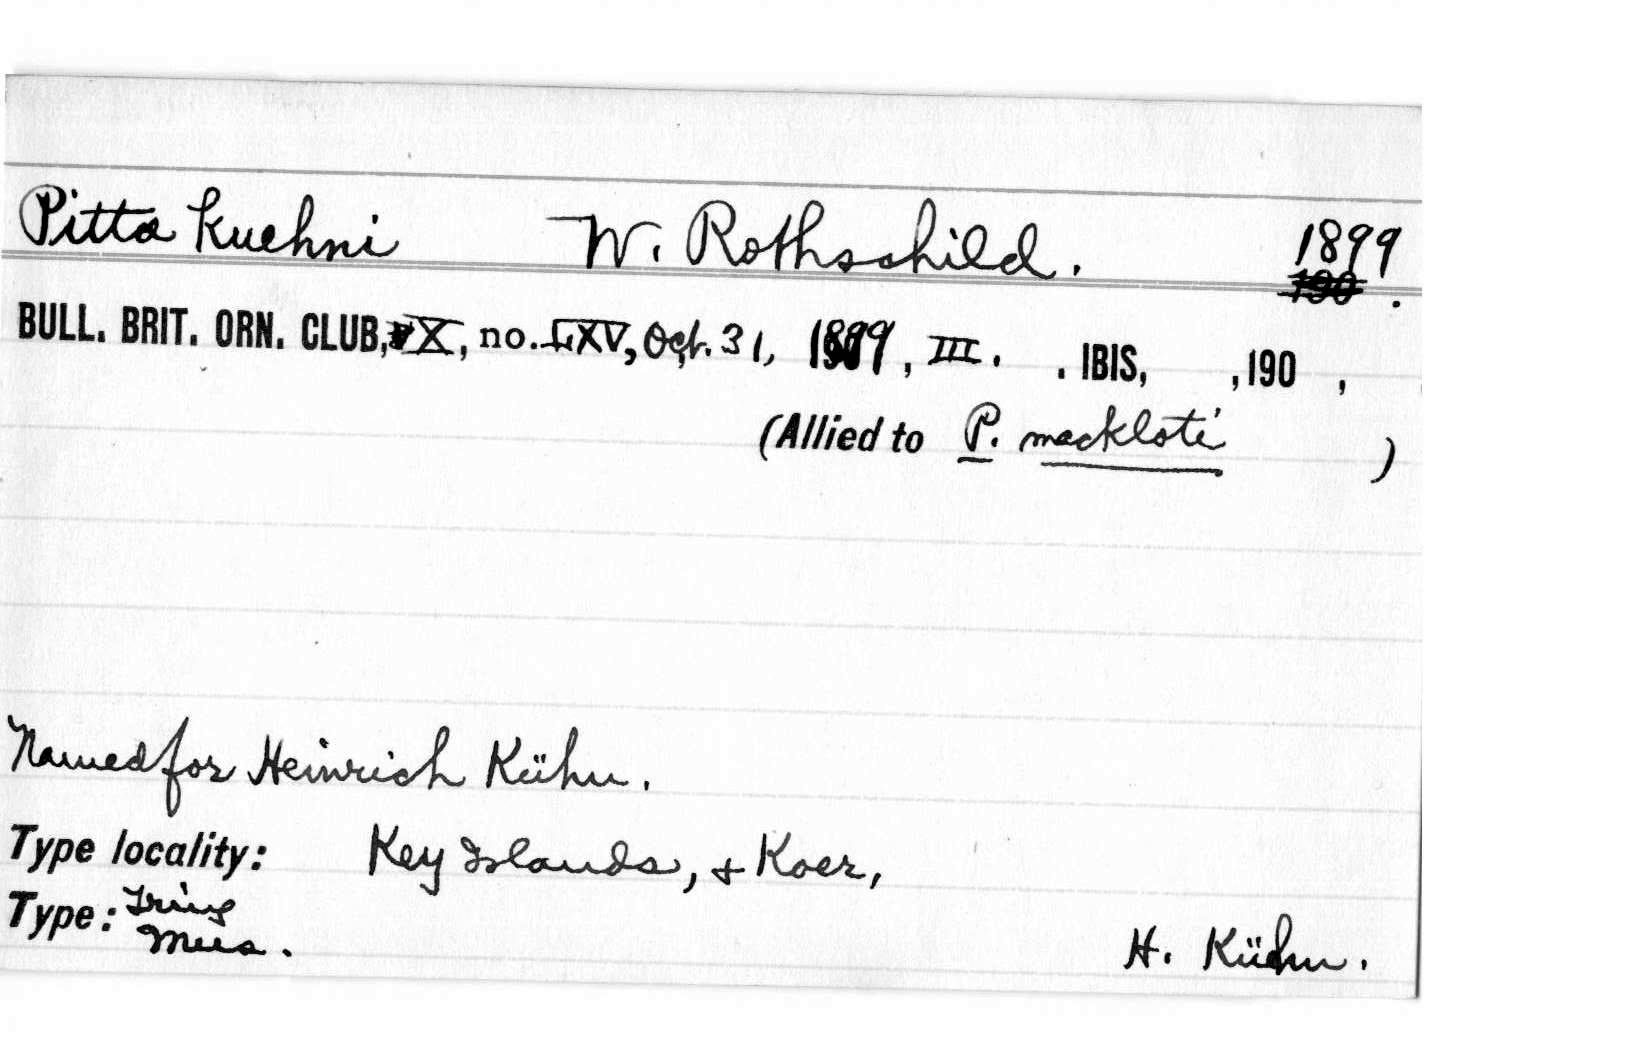 Pitta kuehni W. Rothschild. 1899
190 .
BULL. BRIT. ORN. CLUB, X, no. LXV, Oct. 31, 1899, III. . IBIS, ,190 ,
(Allied to P. mackloti )
Named for Heinrich Kühn.
Type locality: Key Islands, & Koer,
Type: Tring
Mus. H. Kühn.